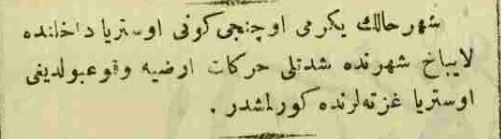 شهر حالك يكرمی اوچنجی كونی اوستريا داخلنده
لايباخ شهرنده شدتلی حركات ارضيه وقوعبولديغی
اوستريا غزته‌لرنده كورلمشدر .